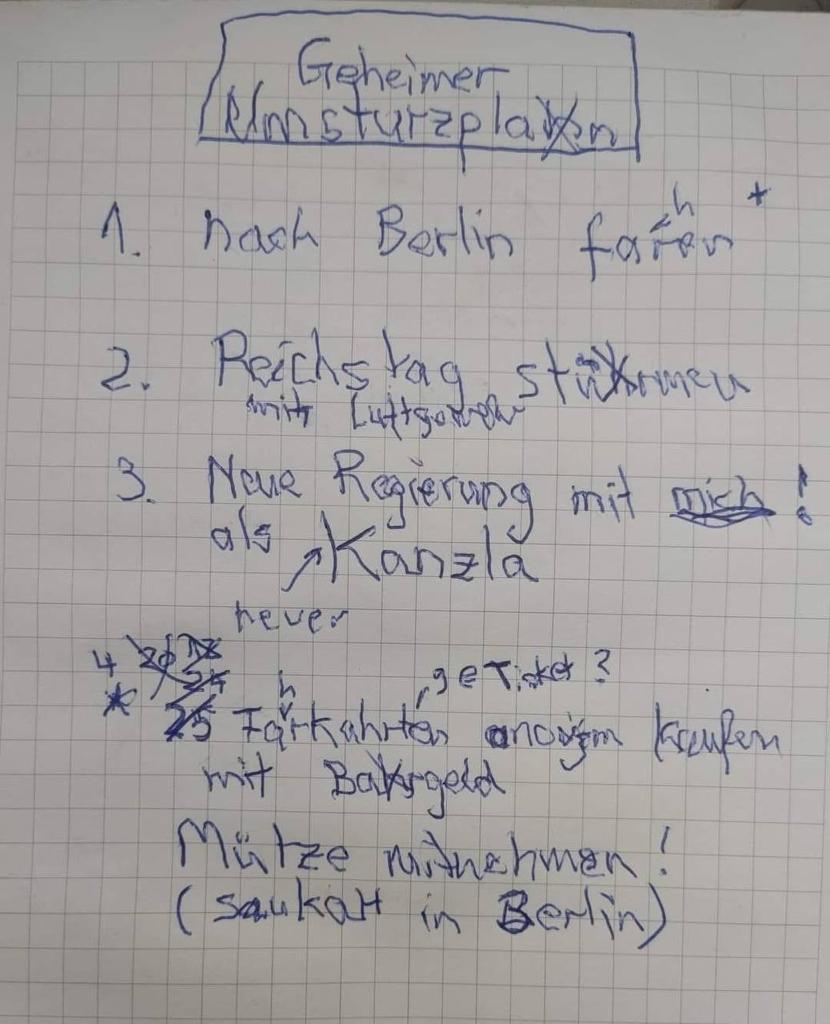 Geheimer
Umsturzplan
1. nach Berlin fahren *
2. Reichstag stürmen
mit Luftgewehr
3. Neue Regierung mit mich!
als Kanzla
neuer
4
, 9€ Ticket?
* Fahrkahrten anonym kaufen
mit Bargeld
Mütze mitnehmen!
(saukalt in Berlin)